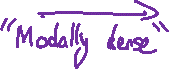 "Modally dense"